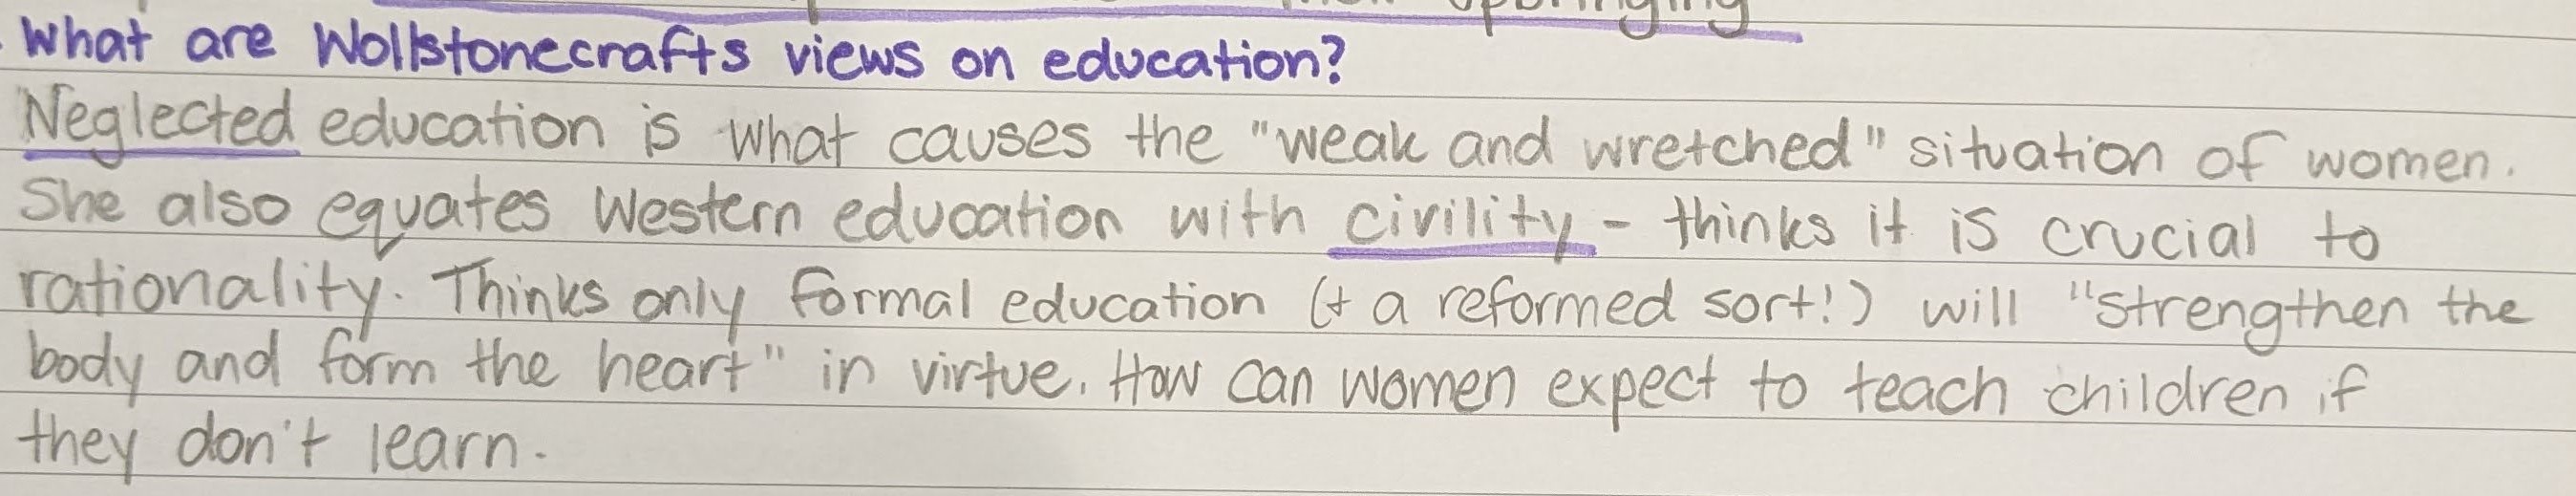 upbringing
What are Wollstonecrafts views on education?
Neglected education is what causes the "weak and wretched" situation of women.
She also equates Western education with civility - thinks it is crucial to
rationality. Thinks only formal education (+ a reformed sort!) will "strengthen the
body and form the heart" in virtue. How can women expect to teach children if
they don't learn.